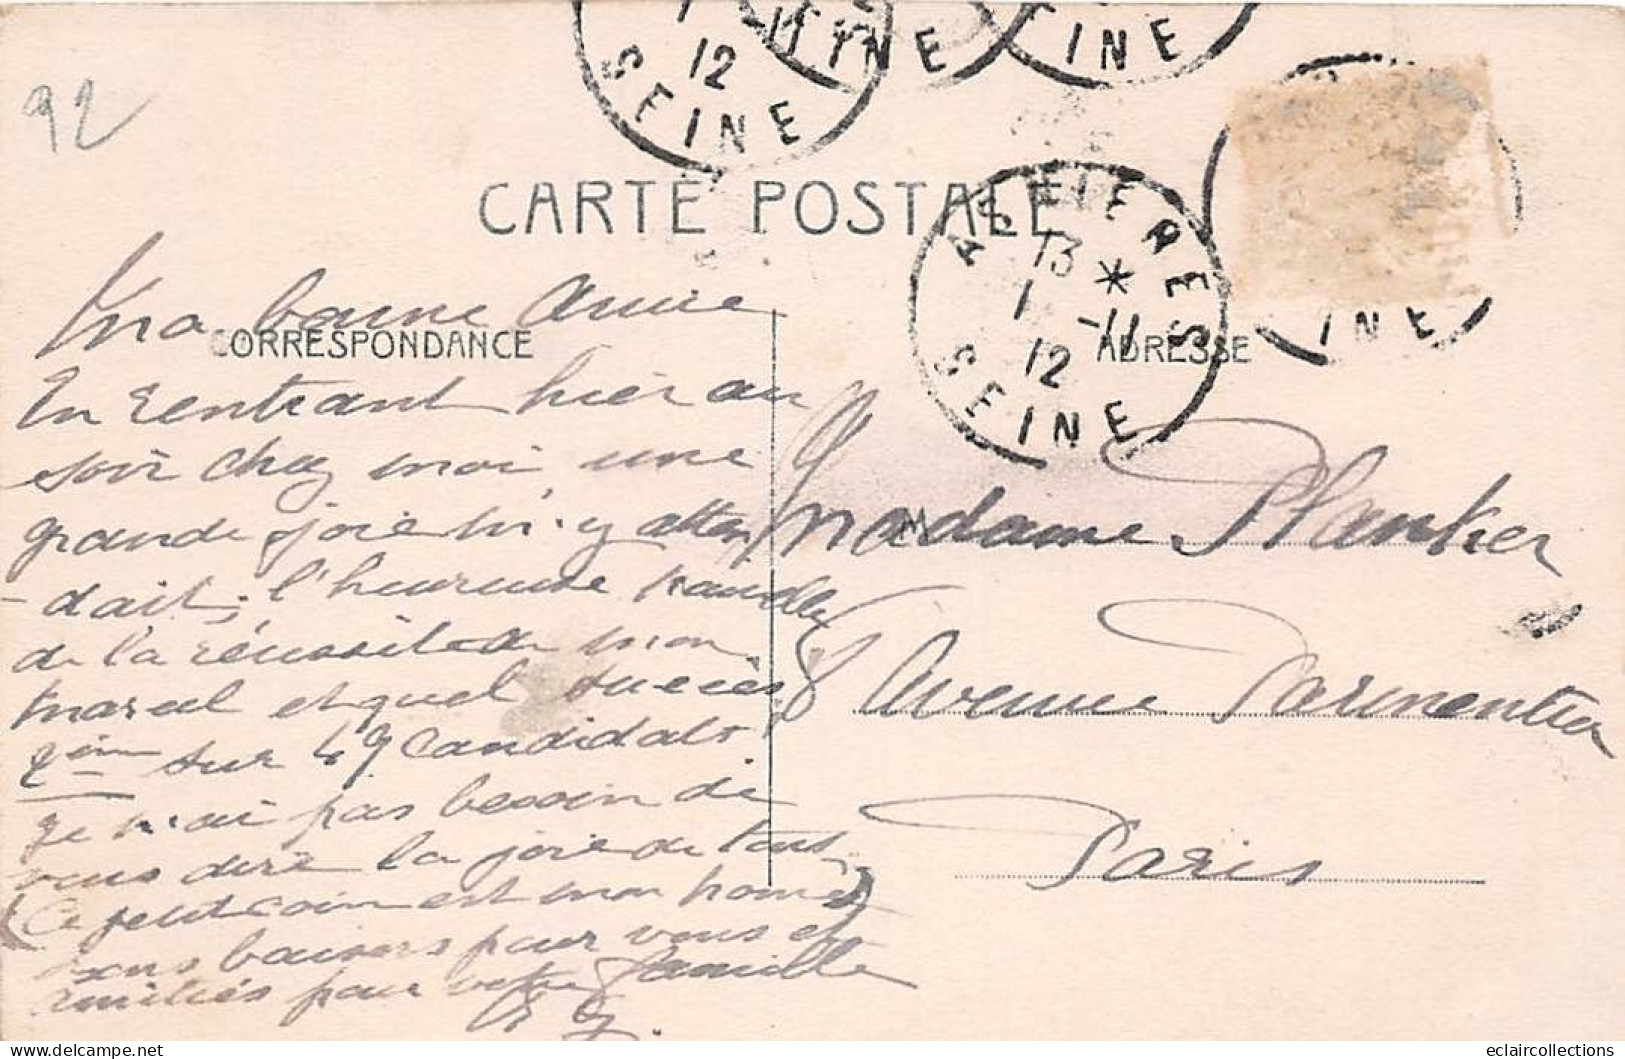 92
12
SEINE
11
INE
INE
CARTE POSTALE
ASNIERES
13 *
1 -11
12
SEINE
INE
CORRESPONDANCE
ADRESSE
Ma bonne Amie
En rentrant hier au
soir chez moi, une
grande joie m'y atten
-dait; l'heureuse nouvelle
de la réussite de mon
Marcel et quel succès
2ème sur 49 candidats!
Je n'ai pas besoin de
vous dire la joie de tous.
(Ce petit coin est mon home)
Bons baisers pour vous et
amitiés pour votre famille
Madame Planker
8 Avenue Parmentier
Paris
eclaircollections